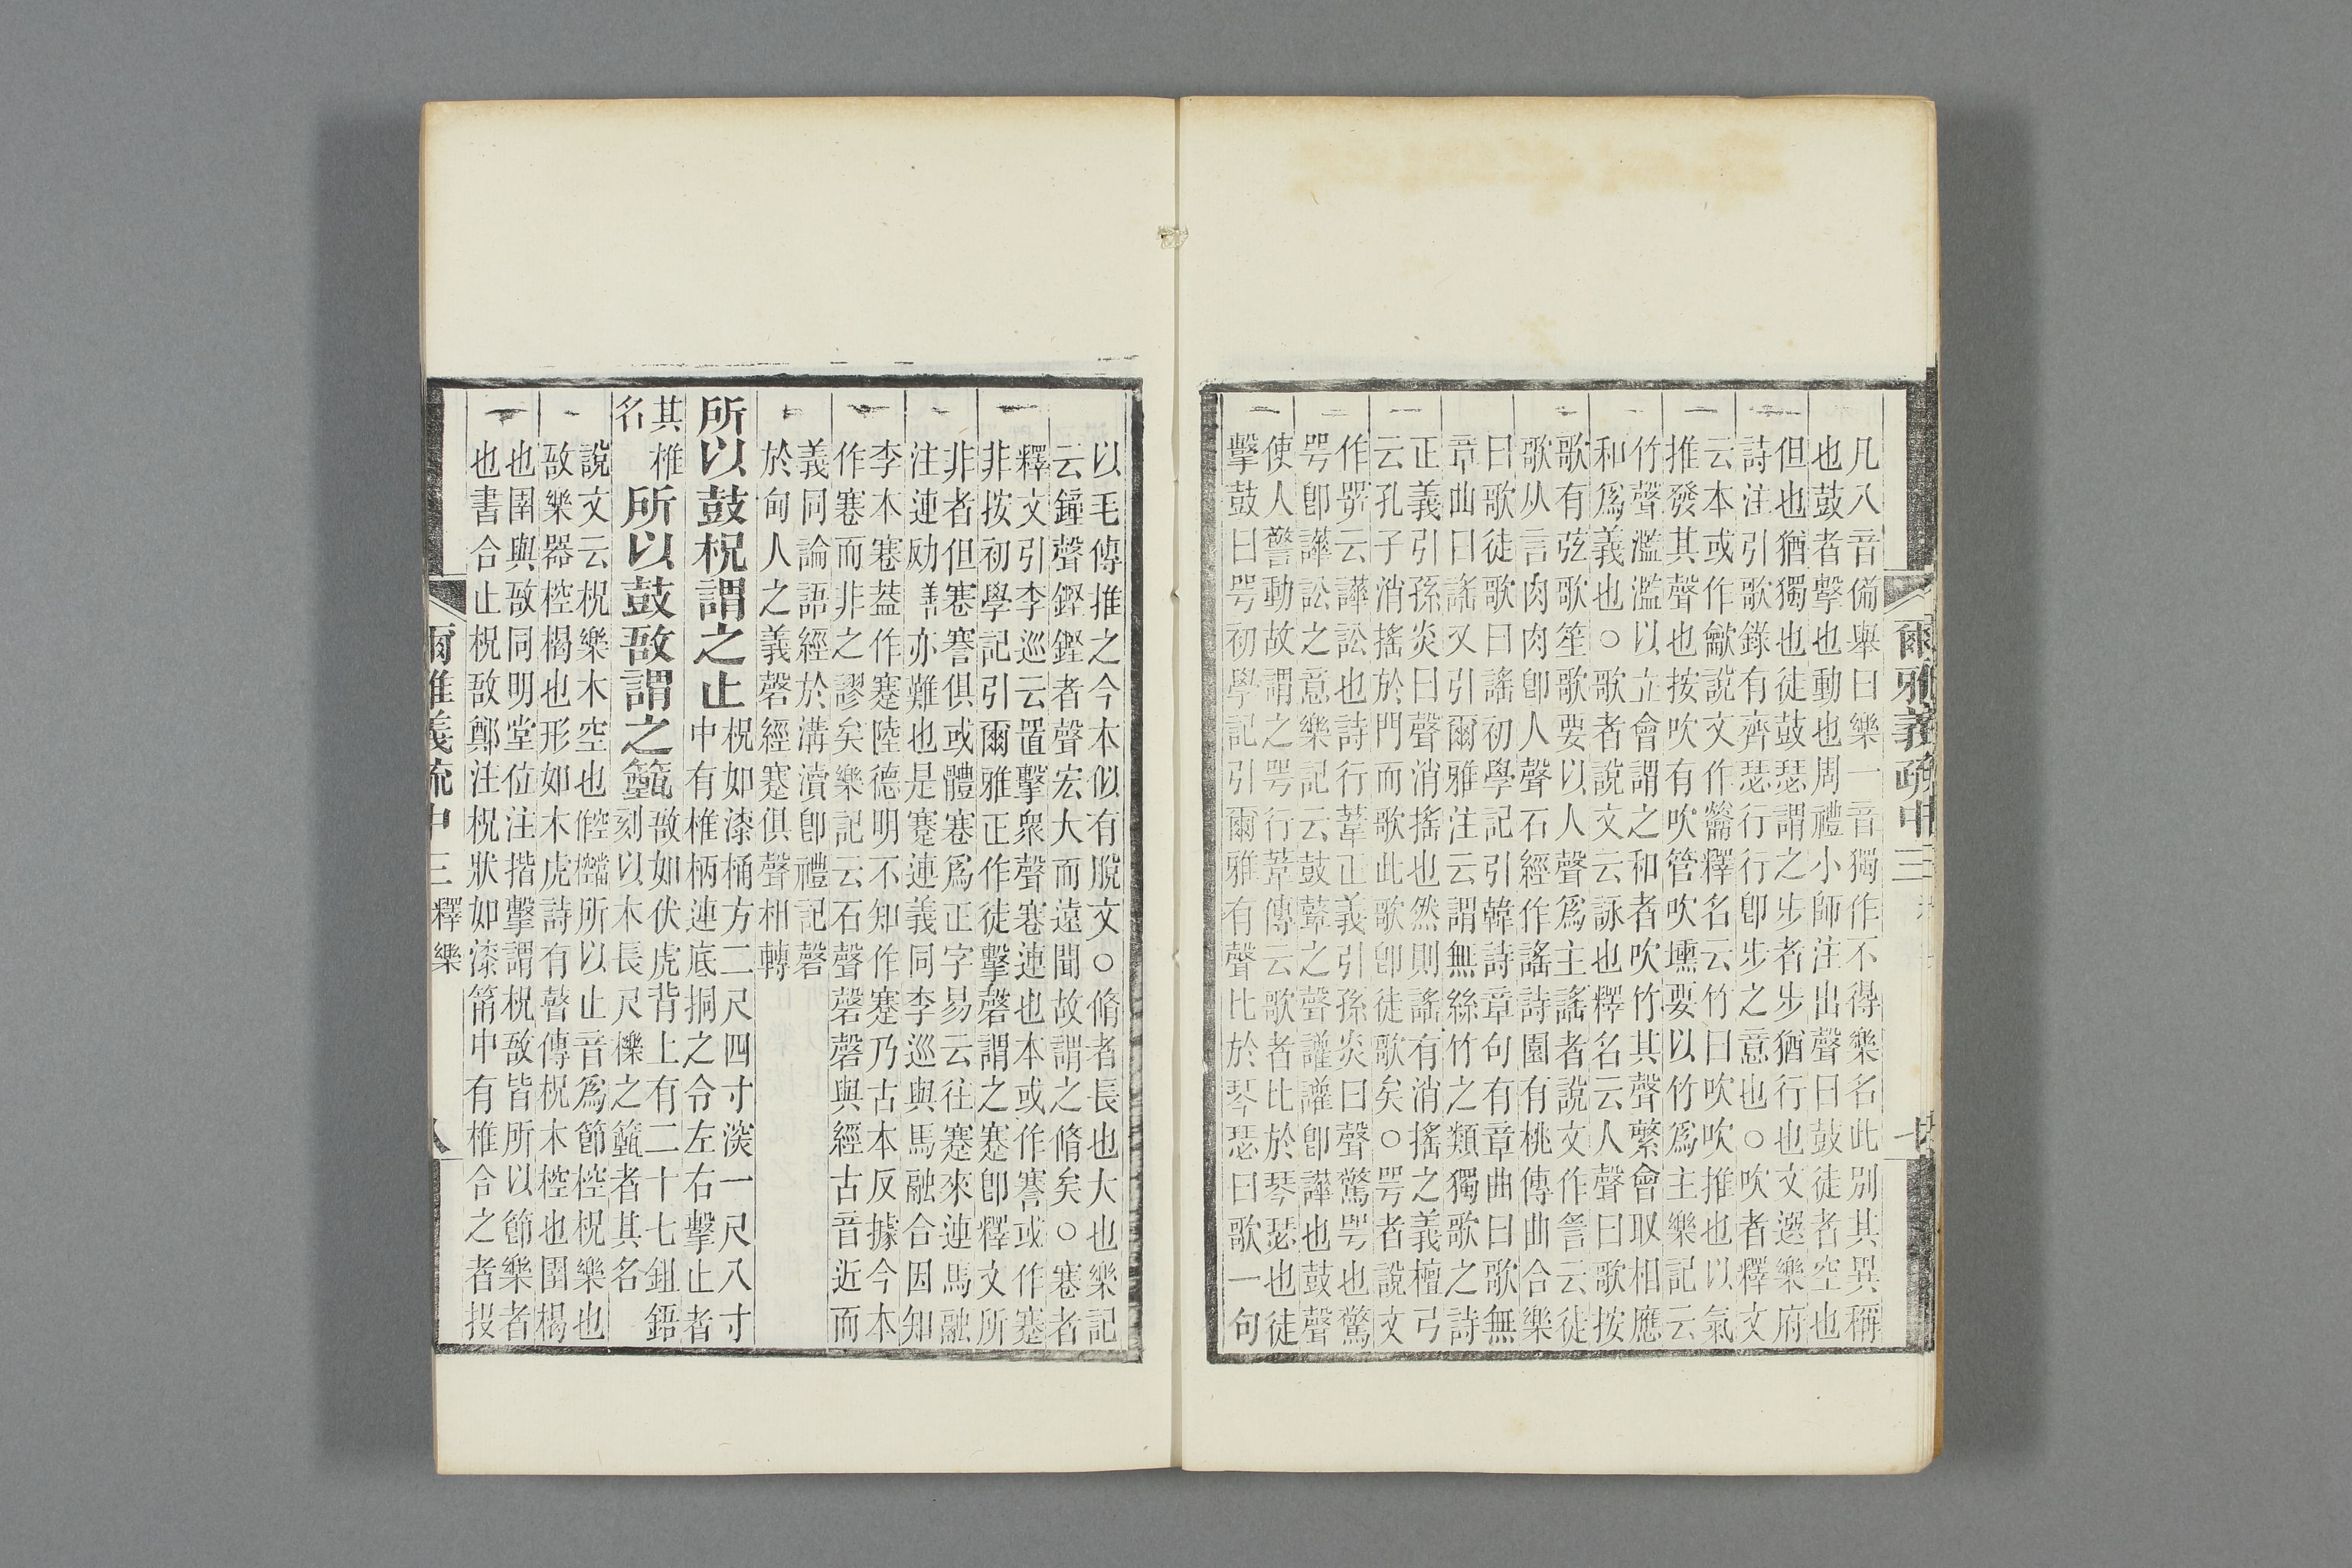 爾雅義疏中三
七
凡八音備舉曰樂一音獨作不得樂名此別其異稱
也鼓者擊也動也周禮小師注出聲曰鼓徒者空也
但也猶獨也徒鼓瑟謂之步者步猶行也文選樂府
詩注引歌錄有齊瑟行行卽步之意也○吹者釋文
云本或作龡說文作籥釋名云竹曰吹吹推也以氣
推發其聲也按吹有吹管吹壎要以竹爲主樂記云
竹聲濫濫以立會謂之和者吹竹其聲繁會取相應
和爲義也○歌者說文云詠也釋名云人聲曰歌按
歌有弦歌笙歌要以人聲爲主謠者說文作䚻云徒
歌从言肉肉卽人聲石經作謠詩園有桃傳曲合樂
曰歌徒歌曰謠初學記引韓詩章句有章曲曰歌無
章曲曰謠又引爾雅注云謂無絲竹之類獨歌之詩
正義引孫炎曰聲消搖也然則謠有消搖之義檀弓
云孔子消搖於門而歌此歌卽徒歌矣○咢者說文
作㖾云譁訟也詩行葦正義引孫炎曰聲驚咢也驚
咢卽譁訟之意樂記云鼓鼙之聲讙讙卽譁也鼓聲
使人警動故謂之咢行葦傳云歌者比於琴瑟也徒
擊鼓曰咢初學記引爾雅有聲比於琴瑟曰歌一句
以毛傳推之今本似有脫文○脩者長也大也樂記
云鐘聲鏗鏗者聲宏大而遠聞故謂之脩矣○寋者
釋文引李巡云置擊衆聲寋連也本或作謇或作蹇
非按初學記引爾雅正作徒擊磬謂之蹇卽釋文所
非者但寋謇俱或體寋爲正字易云往蹇來連馬融
注連劢善亦難也是蹇連義同李巡與馬融合因知
李本寋葢作蹇陸德明不知作蹇乃古本反據今本
作寋而非之謬矣樂記云石聲磬磬與經古音近而
義同論語經於溝瀆卽禮記磬
於甸人之義磬經蹇俱聲相轉
所以鼓柷謂之止
柷如漆桶方二尺四寸深一尺八寸
中有椎柄連底挏之令左右擊止者
其椎
名
所以鼓敔謂之籈
敔如伏虎背上有二十七鉏鋙
刻以木長尺櫟之籈者其名
說文云柷樂木空也椌檔所以止音爲節椌柷樂也
敔樂器椌楬也形如木虎詩有瞽傳柷木椌也圉楬
也圉與敔同明堂位注揩擊謂柷敔皆所以節樂者
也書合止柷敔鄭注柷狀如漆筩中有椎合之者投
爾雅義疏中三 釋樂
八